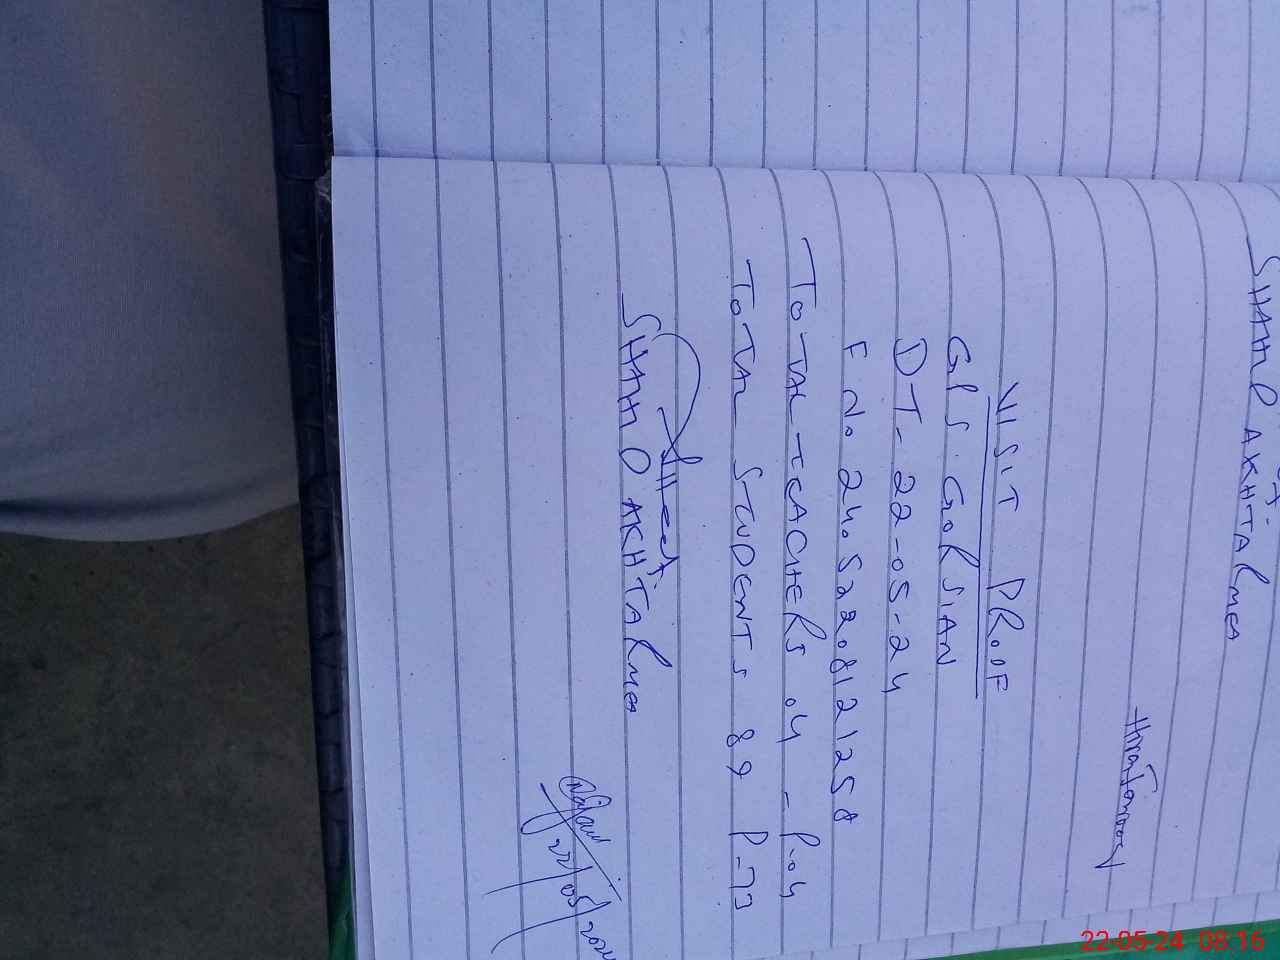 SHAHID AKHTAR MEA
VISIT PROOF
GPS GORSIAN
DT- 22-05-24
F No 24052208121258
TOTAL TEACHERS 04 - P-04
TOTAL STUDENTS 89 P-73
SHAHID AKHTAR MEA
22/05/2024
22-05-24 08:16